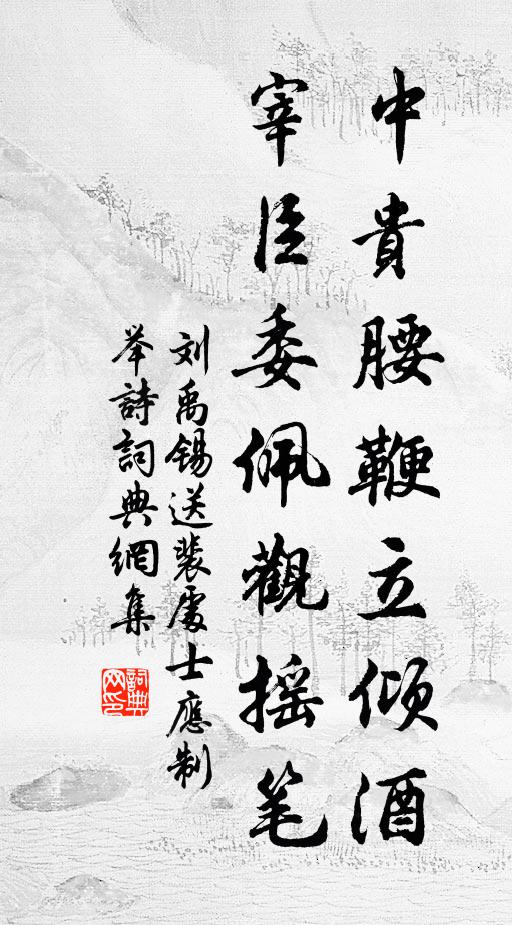 中貴腰鞭立傾酒
宰臣委佩觀摇笔
刘禹锡送裴處士應制
举詩詞典網集
詞典网印